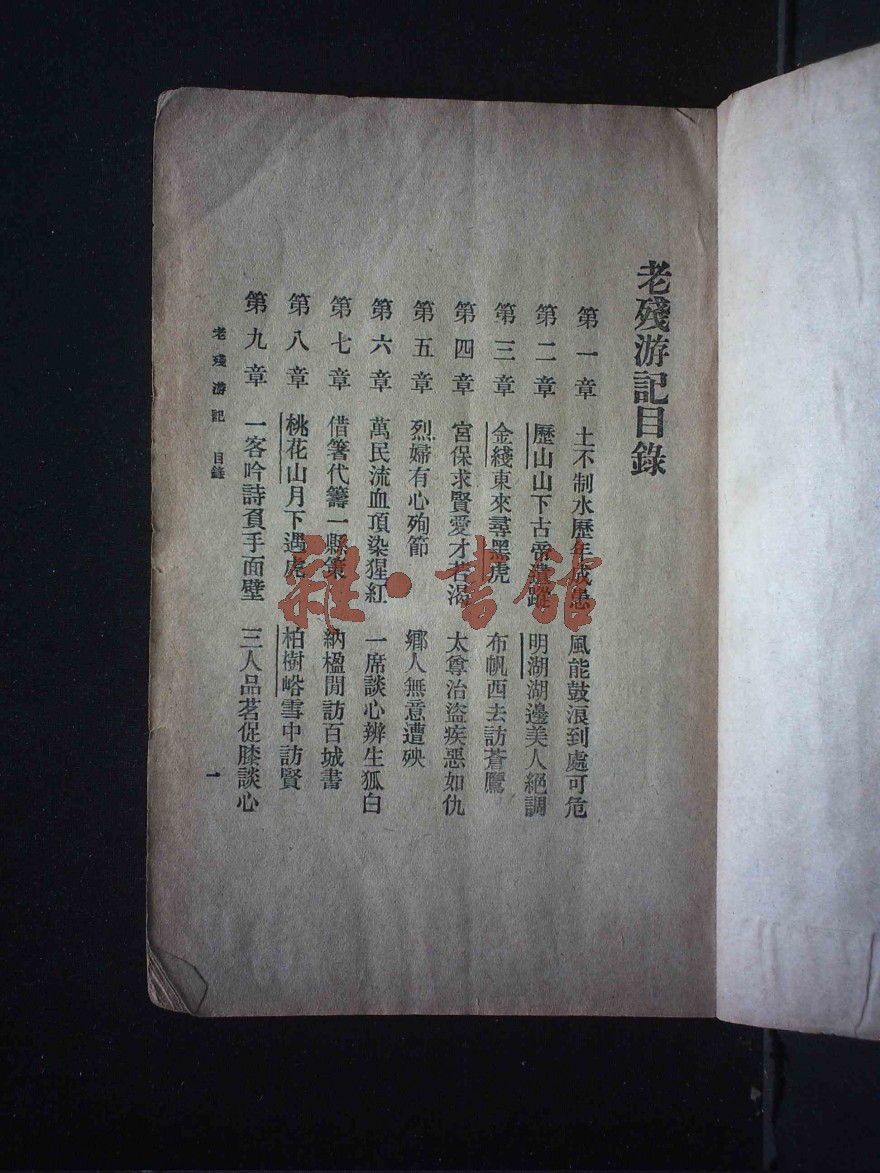 老殘游記目錄
第一章 土不制水歷年成患 風能鼓浪到處可危
第二章 歷山山下古帝遺蹤 明湖湖邊美人絕調
第三章 金綫東來尋黑虎 布帆西去訪蒼鷹
第四章 宮保求賢愛才若渴 太尊治盜疾惡如仇
第五章 烈婦有心殉節 鄉人無意遭殃
第六章 萬民流血頂染猩紅 一席談心辨生狐白
第七章 借箸代籌一縣策 納楹閒訪百城書
第八章 桃花山月下遇虎 柏樹峪雪中訪賢
第九章 一客吟詩負手面壁 三人品茗促膝談心
老殘游記 目錄 一
雜·書館